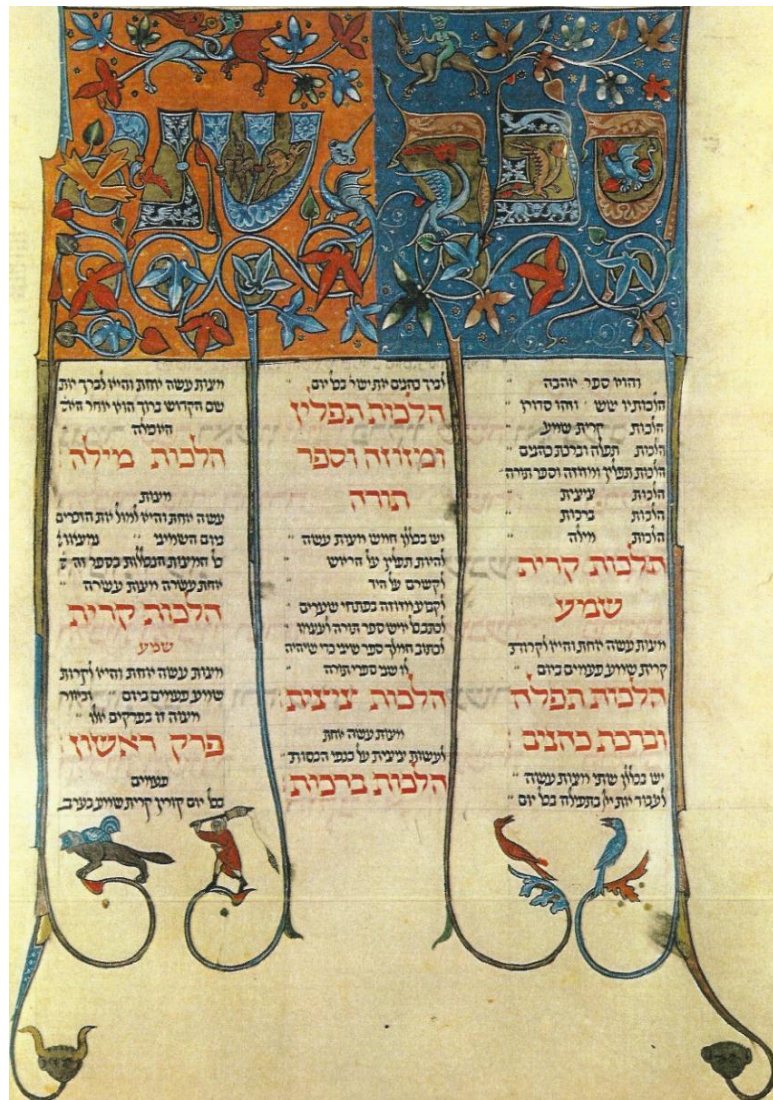 ספר שני
והוא ספר אהבה
הלכותיו שש וזהו סדורן
הלכות קרית שמע
הלכות תפלה וברכת כהנים
הלכות תפלין ומזוזה וספר תורה
הלכות ציצית
הלכות ברכות
הלכות מילה
הלכות קרית
שמע
מצות עשה אחת והיא לקרות
קרית שמע פעמים ביום
הלכות תפלה
וברכת כהנים
יש בכללן שתי מצות עשה
לעבוד את יי בתפילה בכל יום
לברך כהנים את ישר בכל יום
הלכות תפלין
ומזוזה וספר
תורה
יש בכללן חמש מצות עשה
להיות תפלין על הראש
לקשרם על היד
לקבוע מזוזה בפתחי שערים
לכתב איש ספר תורה לעצמו
לכתוב המלך ספר שיני כדי שיהיה
לו שני ספרי תורה
הלכות ציצית
מצות עשה אחת
לעשות ציצית על כנפי הכסות
הלכות ברכות
מצות עשה אחת והיא לברך את
שם הקדוש ברוך הוא אחר
האכילה
הלכות מילה
מצות
עשה אחת והיא למול את הזכרים
ביום השמיני נמצאו
כל המצות הנכללות בספר זה
אחת עשרה מצות עשרה
הלכות קרית
שמע
מצות עשה אחת והיא לקרות
שמע פעמים ביום וביאור
מצוה זו בפרקים אלו
פרק ראשון
פעמים
בכל יום קורין קרית שמע בערב